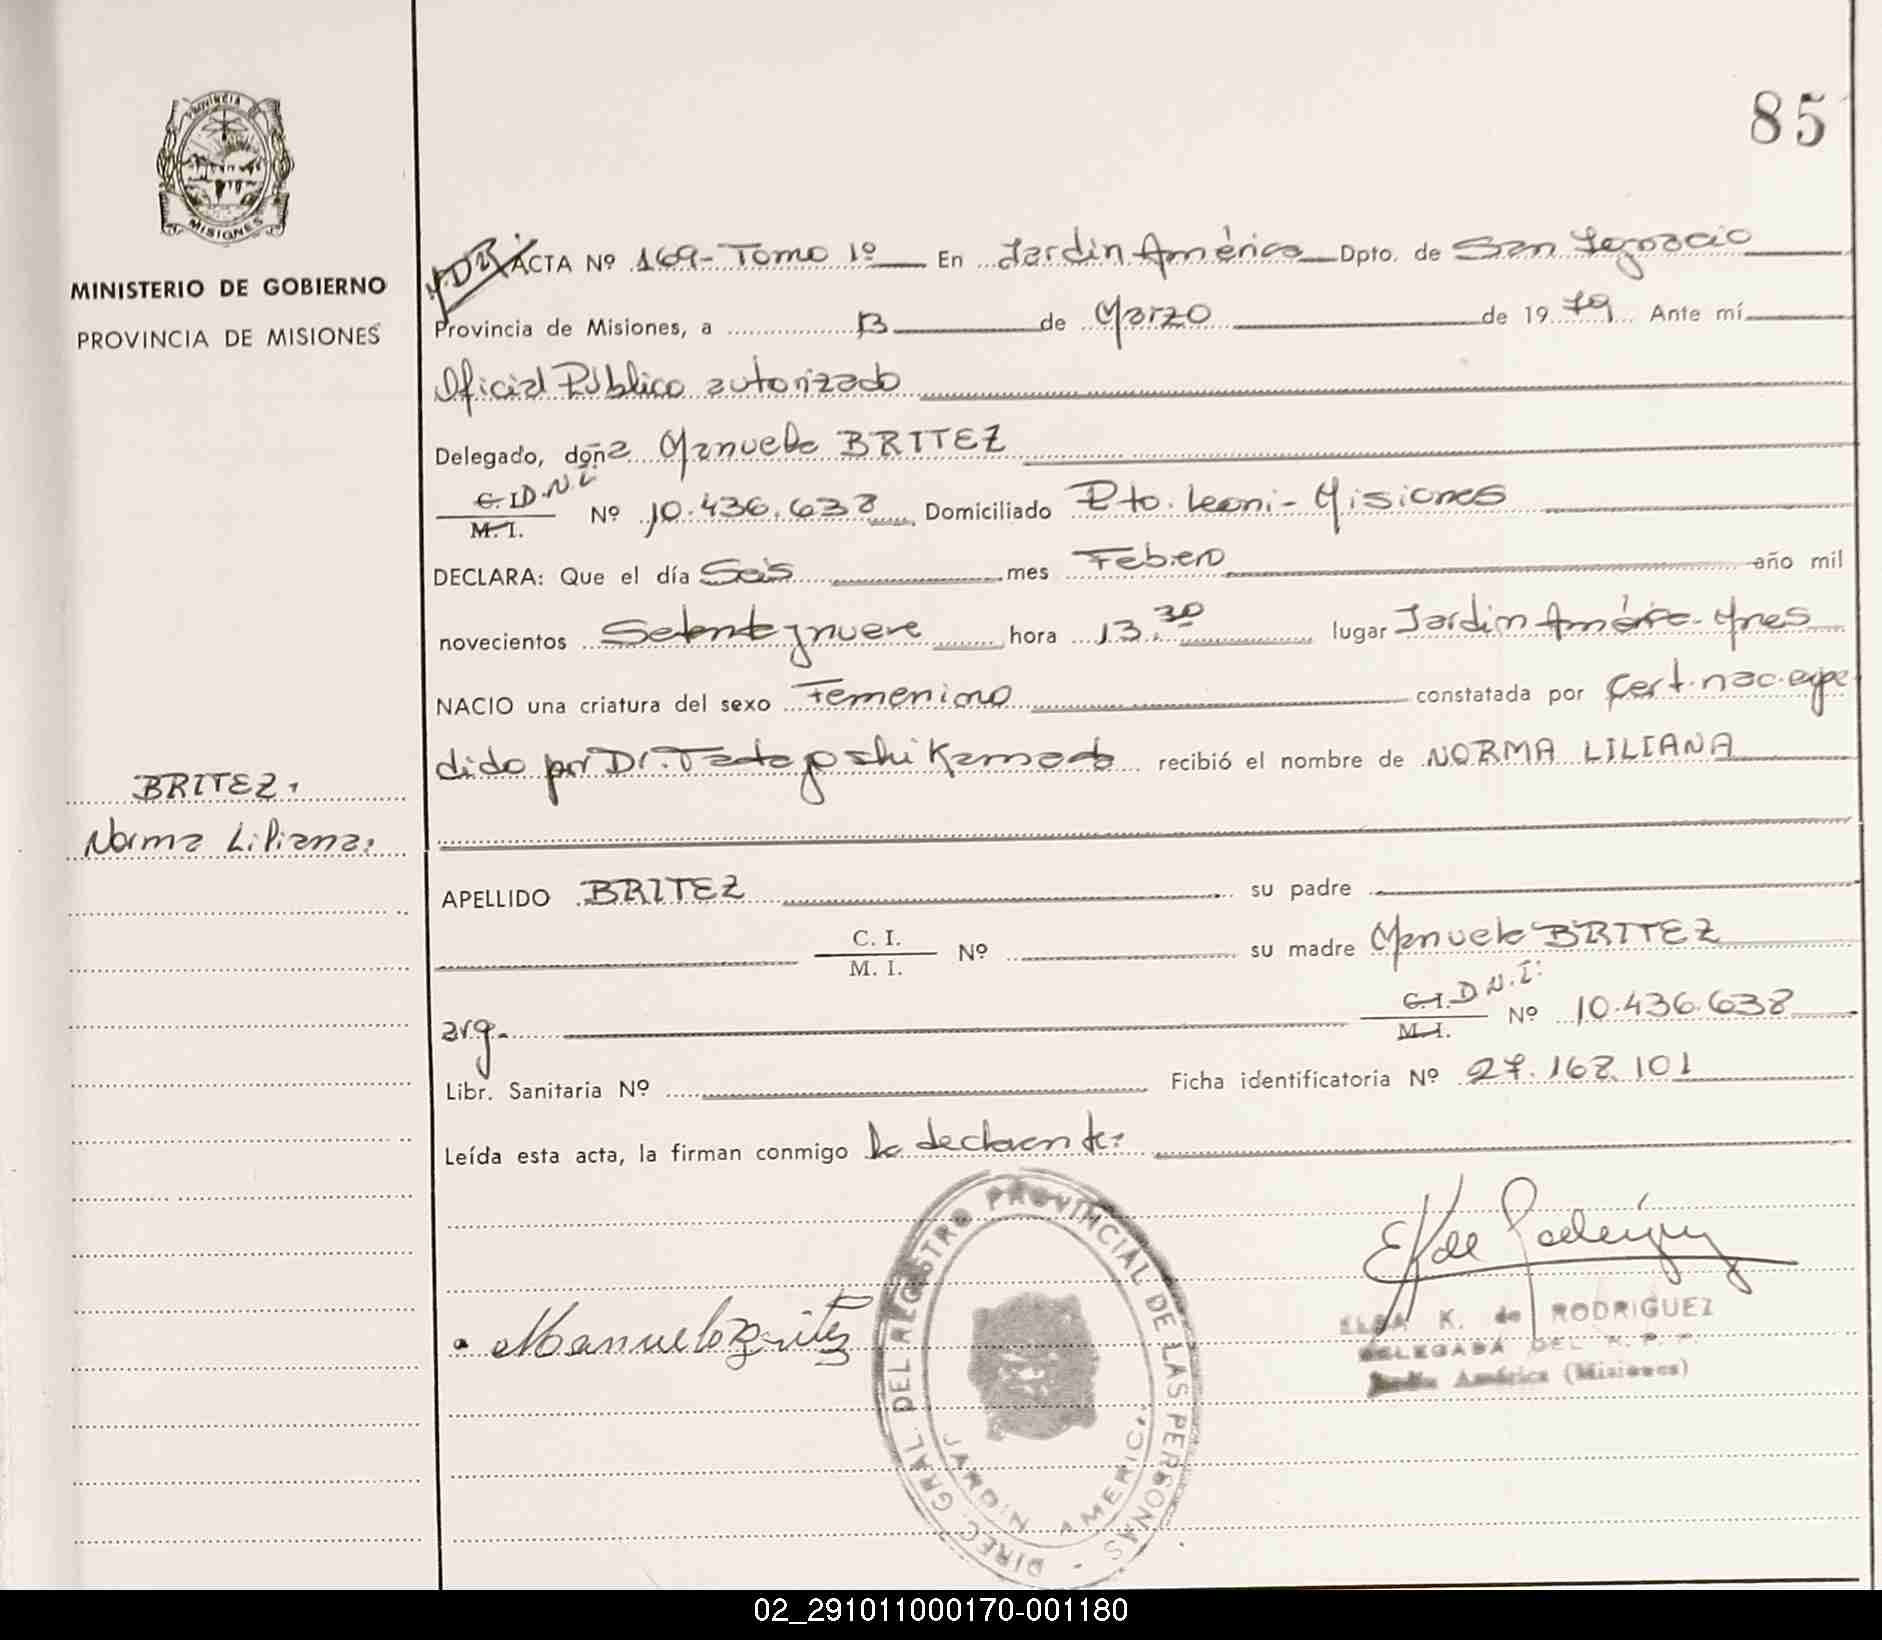 85
PROVINCIA
MISIONES
MINISTERIO DE GOBIERNO
PROVINCIA DE MISIONES
ACTA Nº 169- Tomo 1º En Jardin América Dpto. de San Ignacio
Provincia de Misiones, a 13 de Marzo de 1979 Ante mí
Oficial Público autorizado
Delegado, doña Manuela BRITEZ
C.I. D.N.I. M.I. Nº 10.436.638 Domiciliado Pto. Leoni - Misiones
DECLARA: Que el día Seis mes Febero año mil
novecientos Setenta y nueve hora 13.30 lugar Jardin América - Mnes
NACIO una criatura del sexo Femenino constatada por Cert. nac. expe
dido por Dr. recibió el nombre de NORMA LILIANA
BRITEZ.
Norma Liliana.
APELLIDO BRITEZ su padre
C. I. M. I. Nº su madre Manuela BRITEZ
arg. C.I. D.N.I. M.I. Nº 10.436.638
Libr. Sanitaria Nº Ficha identificatoria Nº 27.168.101
Leída esta acta, la firman conmigo la declarante.
Manuela Britez
E K de Rodriguez
ELBA K. de RODRIGUEZ
DELEGADA DEL R. P. P.
Jardín América (Misiones)
DIREC. GRAL. DEL REGISTRO PROVINCIAL DE LAS PERSONAS -
JARDIN AMERICA
02_291011000170-001180